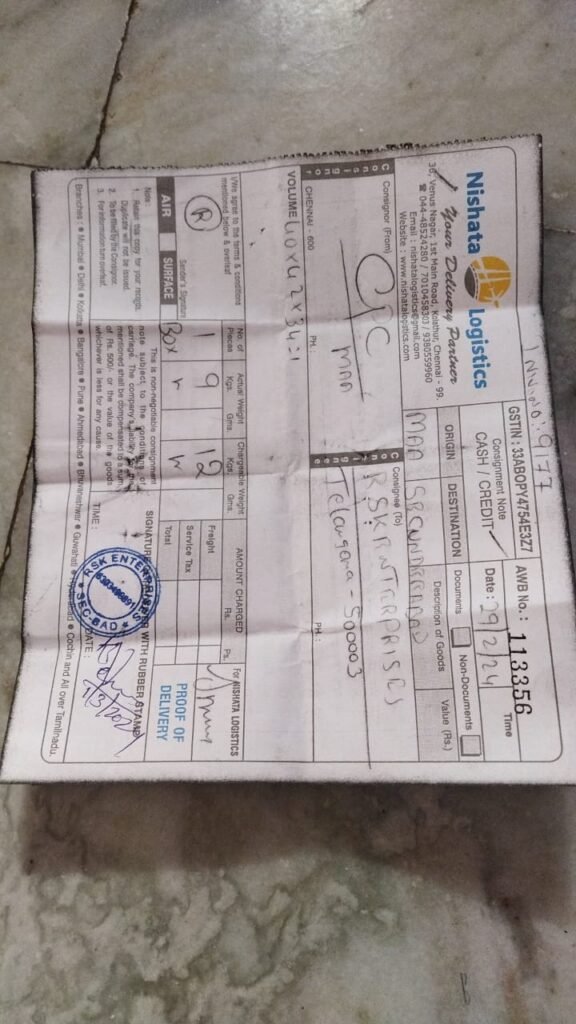 INV.NO: 9177
Nishata Logistics
Your Delivery Partner
36, Venus Nagar, 1st Main Road, Kolathur, Chennai - 99.
☎ 044-48524280 / 7010458303 / 9380559960
Email : nishatalogistics@gmail.com
Website : www.nishatalogistics.com
GSTIN : 33ABOPY4754E3Z7
Consignment Note
CASH / CREDIT
AWB No. : 113356
Date : 29/2/24
Time
ORIGIN
DESTINATION
Documents
Non-Documents
Description of Goods
Value (Rs.)
MAA
Consignor (From)
CPC
MAA
CHENNAI - 600
PH. :
Consignee (To)
RSK ENTERPRISES
Telangana - 500003
PH. :
VOLUME 40x42x34=1
I/We agree to the terms & conditions
mentioned below & overleaf
R
Sender's Signature
AIR
SURFACE
No. of Pieces
Actual Weight
Kgs. Gms.
Chargeable Weight
Kgs. Gms.
AMOUNT CHARGED
Rs. Ps.
Box
9
12
Freight
Service Tax
Total
For NISHATA LOGISTICS
PROOF OF
DELIVERY
Note :
1. Retain this copy for your records.
Duplicate will not be issued.
2. To be filled by the Consignor.
3. For information turn overleaf.
This is non-negotiable consignment
note subject to the conditions of
carriage. The company's liability
mentioned shall be compensated a sum
of Rs. 500/- or the value of the goods
whichever is less for any cause.
SIGNATURE WITH RUBBER STAMP
TIME :
DATE :
RSK ENTERPRISES
SEC-BAD
Branches : ● Mumbai ● Delhi ● Kolkata ● Bangalore ● Pune ● Ahmedabad ● Bhuvaneshwar ● Guwahati ● Hyderabad ● Cochin and All over Tamilnadu.